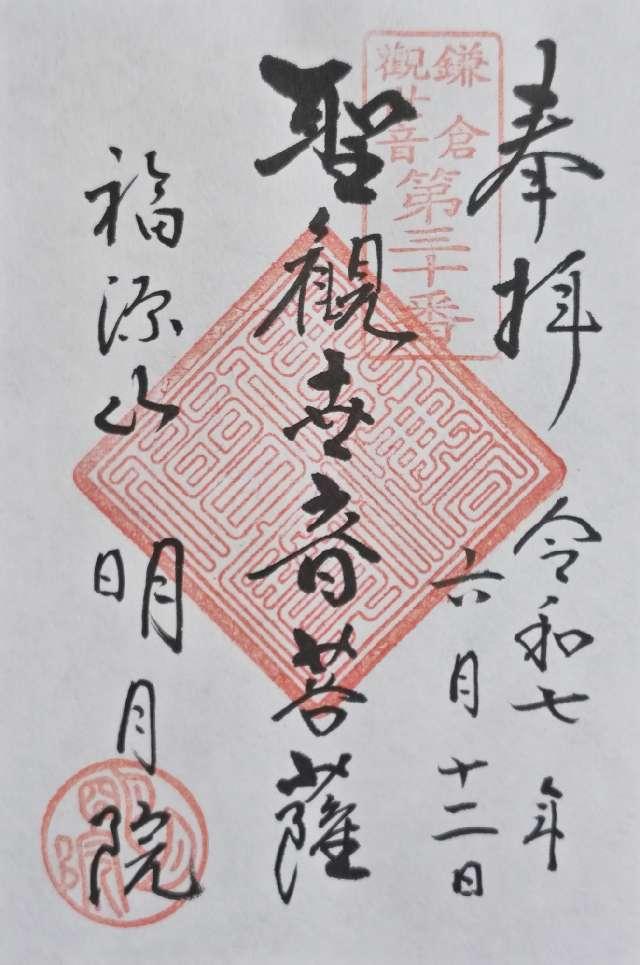 奉拝
令和七年
六月十二日
鎌倉
観世音
第三十番
聖観世音菩薩
福源山
明月院